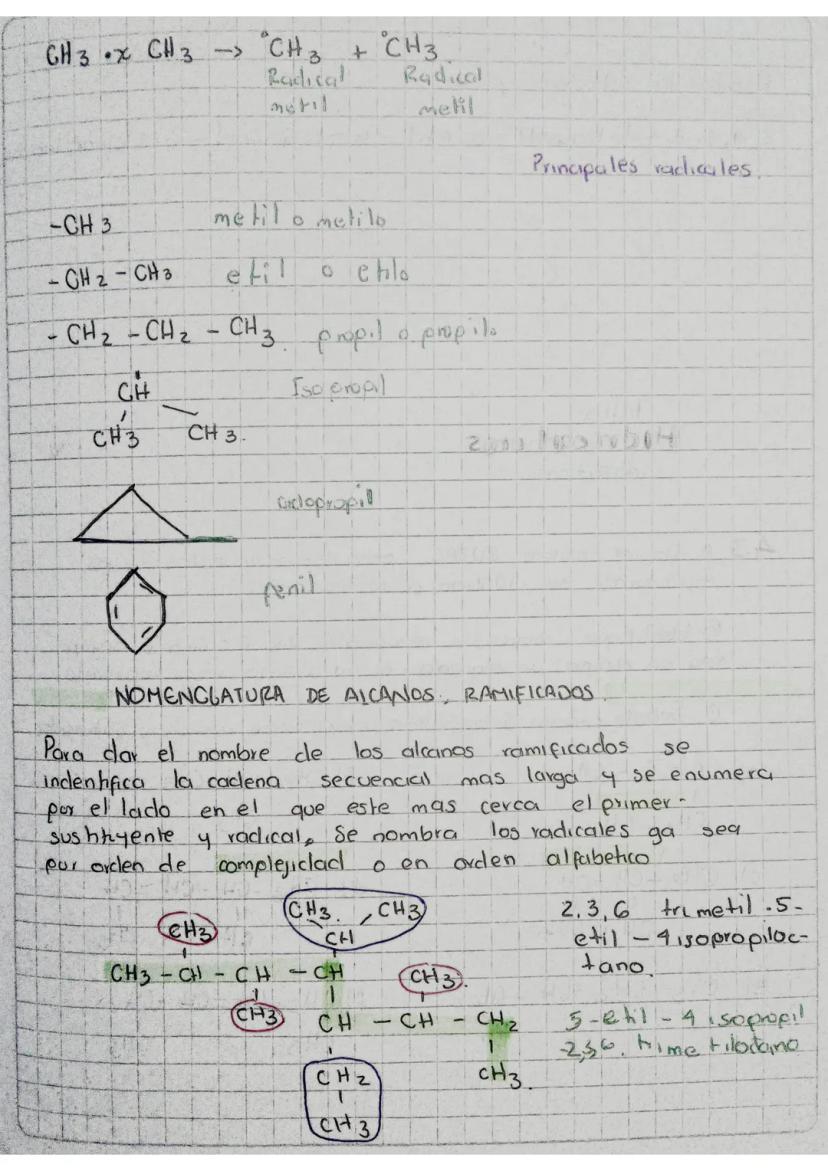 CH3 •x CH3 -> °CH3 + °CH3
Radical Radical
metil metil
Principales radicales.
-CH3 metil o metilo
-CH2-CH3 etil o etilo
-CH2-CH2-CH3. propil o propilo
CH Isopropil
CH3 CH3.
ciclopropil
fenil
NOMENCLATURA DE ALCANOS, RAMIFICADOS.
Para dar el nombre de los alcanos ramificados se
indentifica la cadena secuencial mas larga y se enumera
por el lado en el que este mas cerca el primer-
sustituyente y radical, se nombra los radicales ya sea
por orden de complejidad o en orden alfabetico
CH3. CH3
CH3 CH
CH3 - CH - CH - CH CH3.
CH3 CH - CH - CH2
CH2 CH3.
CH3
2,3,6 trimetil-5-
etil-4 isopropiloc-
tano.
5-etil-4 isopropil
-2,3,6. trimetiloctano